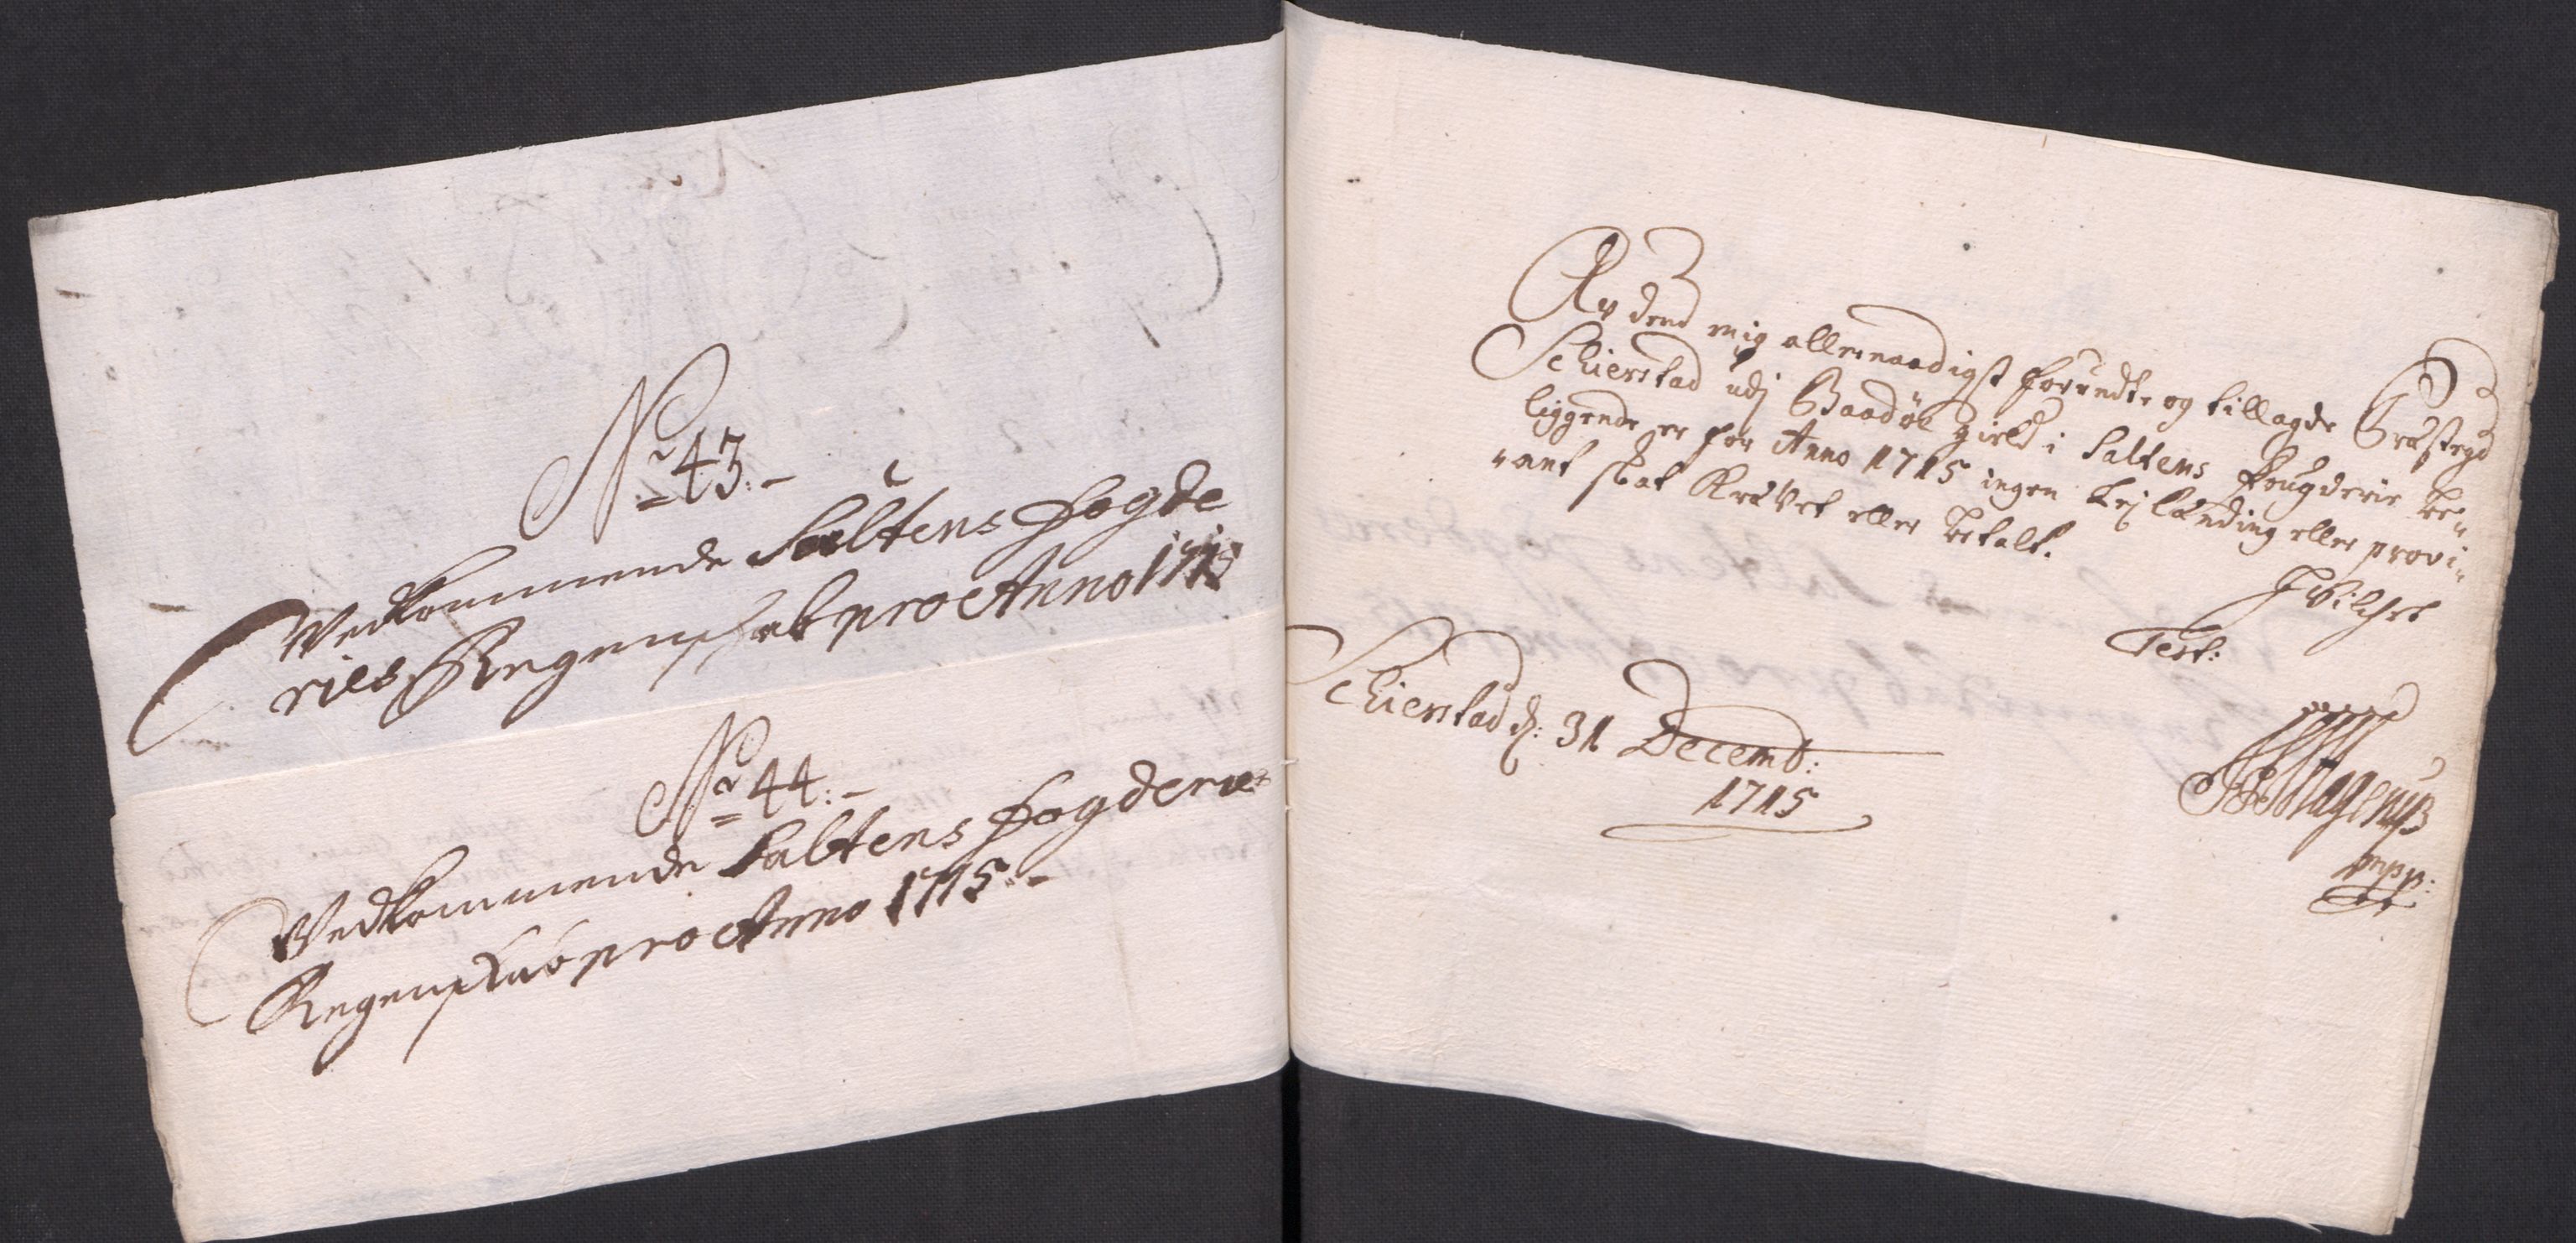 No 43.-
Vedkommende Saltens Fogde
ries Regenschab pro Anno 1715
No 44:-
Vedkommende Saltens Fogderie
Regenskab pro Anno 1715.-
Av dend mig allernaadigst forundte og tillagde Præstegd
Schierstad udj Baadøe gield i Saltens Fougderie be„
liggende er for Anno 1715 ingen Leylænding eller provi„
„ant skat Krævet eller betalt.
Test:
Schierstad d: 31 Decemb:
1715
mpp: